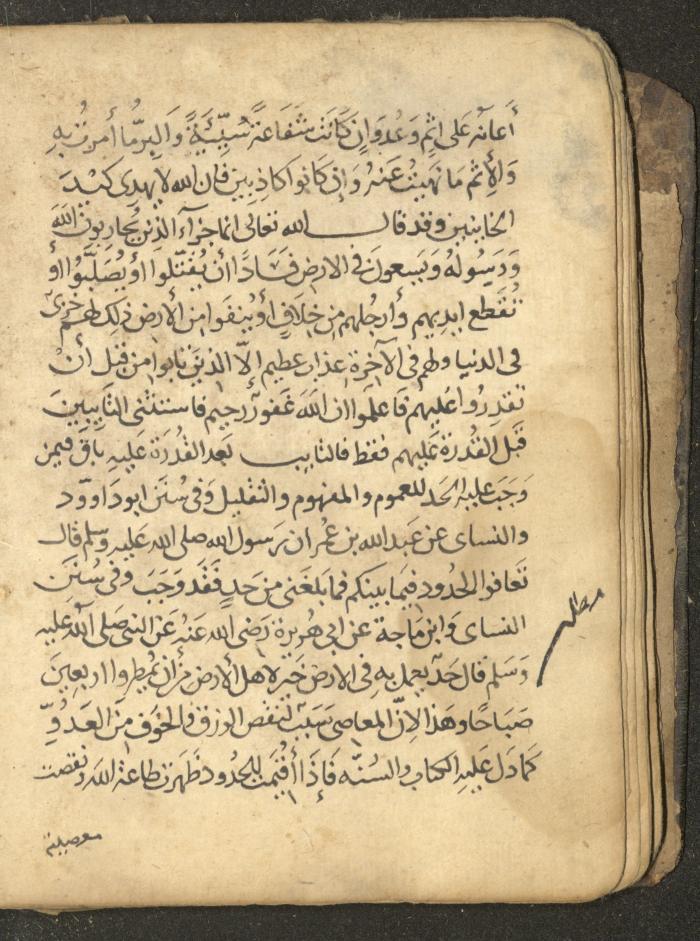 أعانه على اثم وعدوان كانت شفاعة سيئة والبر ما أمرت به
والإثم ما نهيت عنه وإن كانوا كاذبين فان الله لا يهدى كيد
الخاينين وقد قال الله تعالى انما جزآء الذين يحاربون الله
ورسوله ويسعون فى الارض فسادا أن يقتلوا أو يصلبوا أو
تقطع ايديهم وأرجلهم من خلاف أو ينفوا من الأرض ذلك لهم خزى
فى الدنيا ولهم فى الآخرة عذاب عظيم إلا الذين تابوا من قبل أن
تقدروا عليهم فاعلموا ان الله غفور رحيم فاستثنى التايبين
قبل القدرة عليهم فقط فالتايب بعد القدرة عليه باق فيمن
وجب عليه الحد للعموم والمفهوم والتعليل وفى سنن ابو داوود
والنساى عن عبد الله بن عمر ان رسول الله صلى الله عليه وسلم قال
تعافوا الحدود فيما بينكم فما بلغنى من حد فقد وجب وفى سنن
النساى وابن ماجة عن ابى هريرة رضى الله عنه عن النبى صلى الله عليه
وسلم قال حد يعمل به فى الارض خير لاهل الأرض من أن يمطروا اربعين
صباحا وهذا لان المعاصى سبب لنقص الرزق والخوف من العدو
كما دل عليه الكتاب والسنه فإذا أقيمت الحدود ظهرت طاعة الله ونقصت
معصيته
مطلب